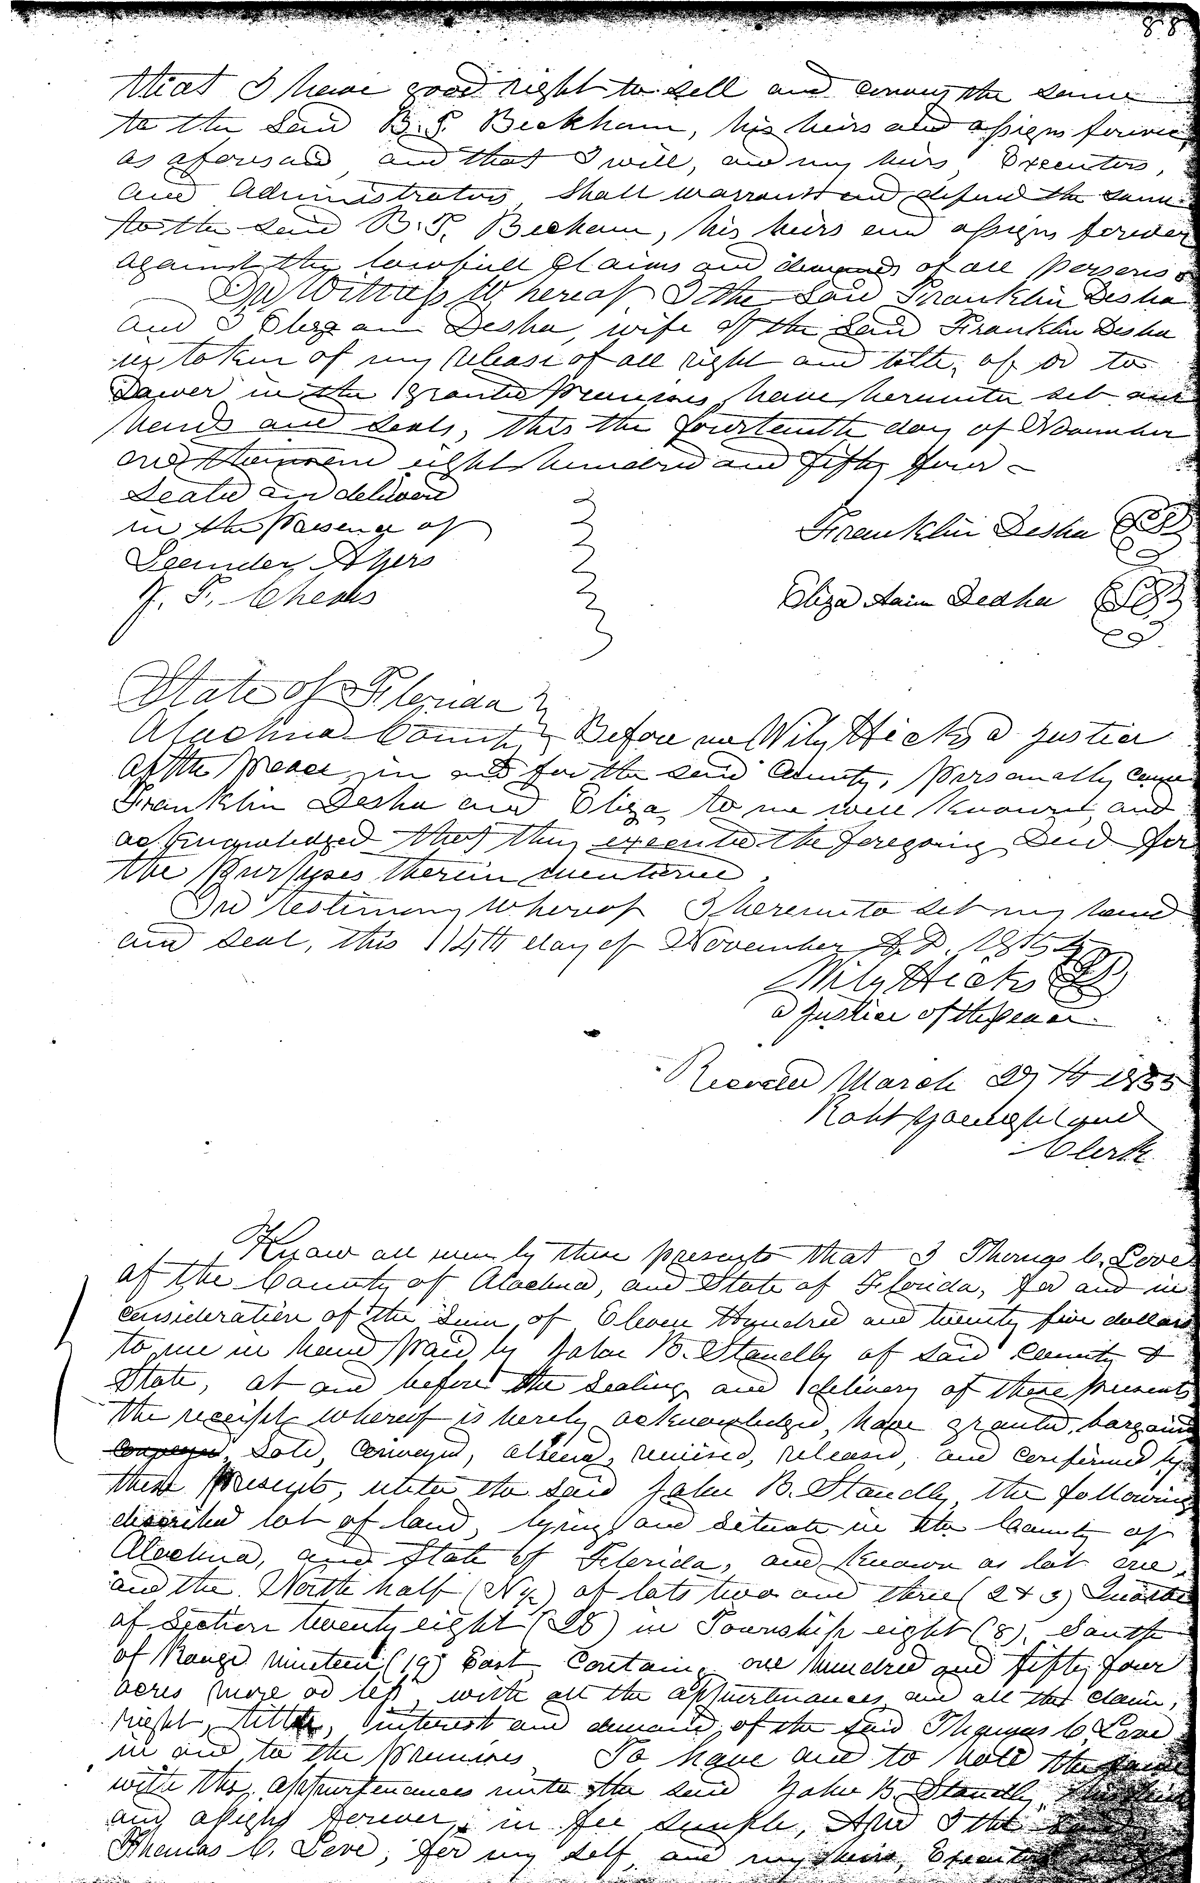 88
that I have good right to sell and convey the same
to the Said B. F. Beckham, his heirs and assigns forever
as aforesaid, and that I will, and my heirs, Executors,
and Administrators, Shall warrant and defend the same
to the said B. F. Becham, his heirs and assigns forever
against the lawfull Claims and demands of all persons
In Witness Whereof I the Said Franklin Desha
and I Eliza ann Desha, wife of the Said Franklin Desha
in token of my release of all right and title, of or to
Dower in the granted premises, have hereunto set our
hands and seals, this the fourteenth day of November
one thousand eight hundred and fifty four
Sealed and delivered
in the presence of
Leander Ayers
J. F. Cheves
Franklin Desha
Eliza Aain Dedha
State of Florida
Alachua County Before me Wily Hicks a justice
of the peace, in and for the said County, personally came
Franklin Desha and Eliza, to me well known, and
acknowledged that they executed the foregoing Deed for
the purposes therein mentioned.
In testimony whereof I hereunto set my hand
and seal, this 14th day of November A.D. 1854
Wily Hicks
a justice of the peace
Recorded March 29th 1855
Robt
Clerk
Know all men by these presents that I Thomas C. Love
of the County of Alachua, and State of Florida, for and in
consideration of the Sum, of Eleven Hundred and twenty five dollars
to me in hand paid by John B. Standly of said County &
State, at and before the Sealing and delivery of these presents
the receipt whereof is hereby acknowledged, have granted, bargained
conveyed, Sold, conveyed, aliened, remised, released, and confirmed by
these presents, unto the said John B. Standly, the following
described lot of land, lying and situate in the County of
Alachua, and State of Florida, and known as lot one,
and the North half (N½) of lots two and three (2 & 3) Quarter
of Section twenty eight (28) in Township eight (8), South
of Range nineteen (19) East, Contain, one hundred and fifty four
acres more or less, with all the appurtenances and all the claim,
right, title, interest and demand of the said Thomas C. Love
in and to the premises, To have and to hold the same
with the appurtenances unto the said John B. Standly,
and assigns forever, in fee simple, And I the said
Thomas C. Love, for my self, and my heirs, Executors